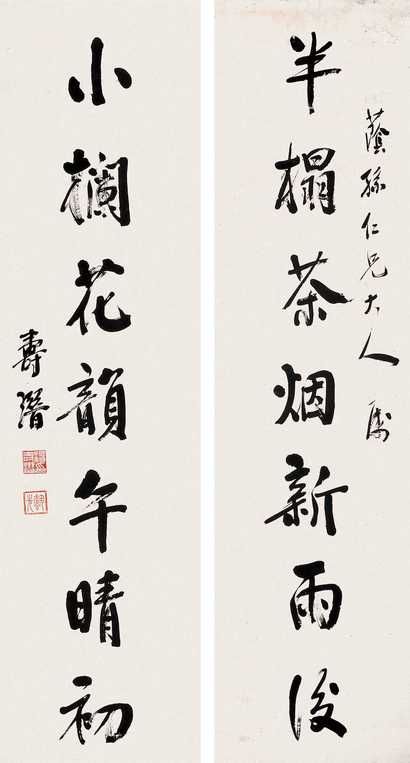 蔭孫仁兄大人属
半榻茶烟新雨後
小欄花韻午晴初
壽潛